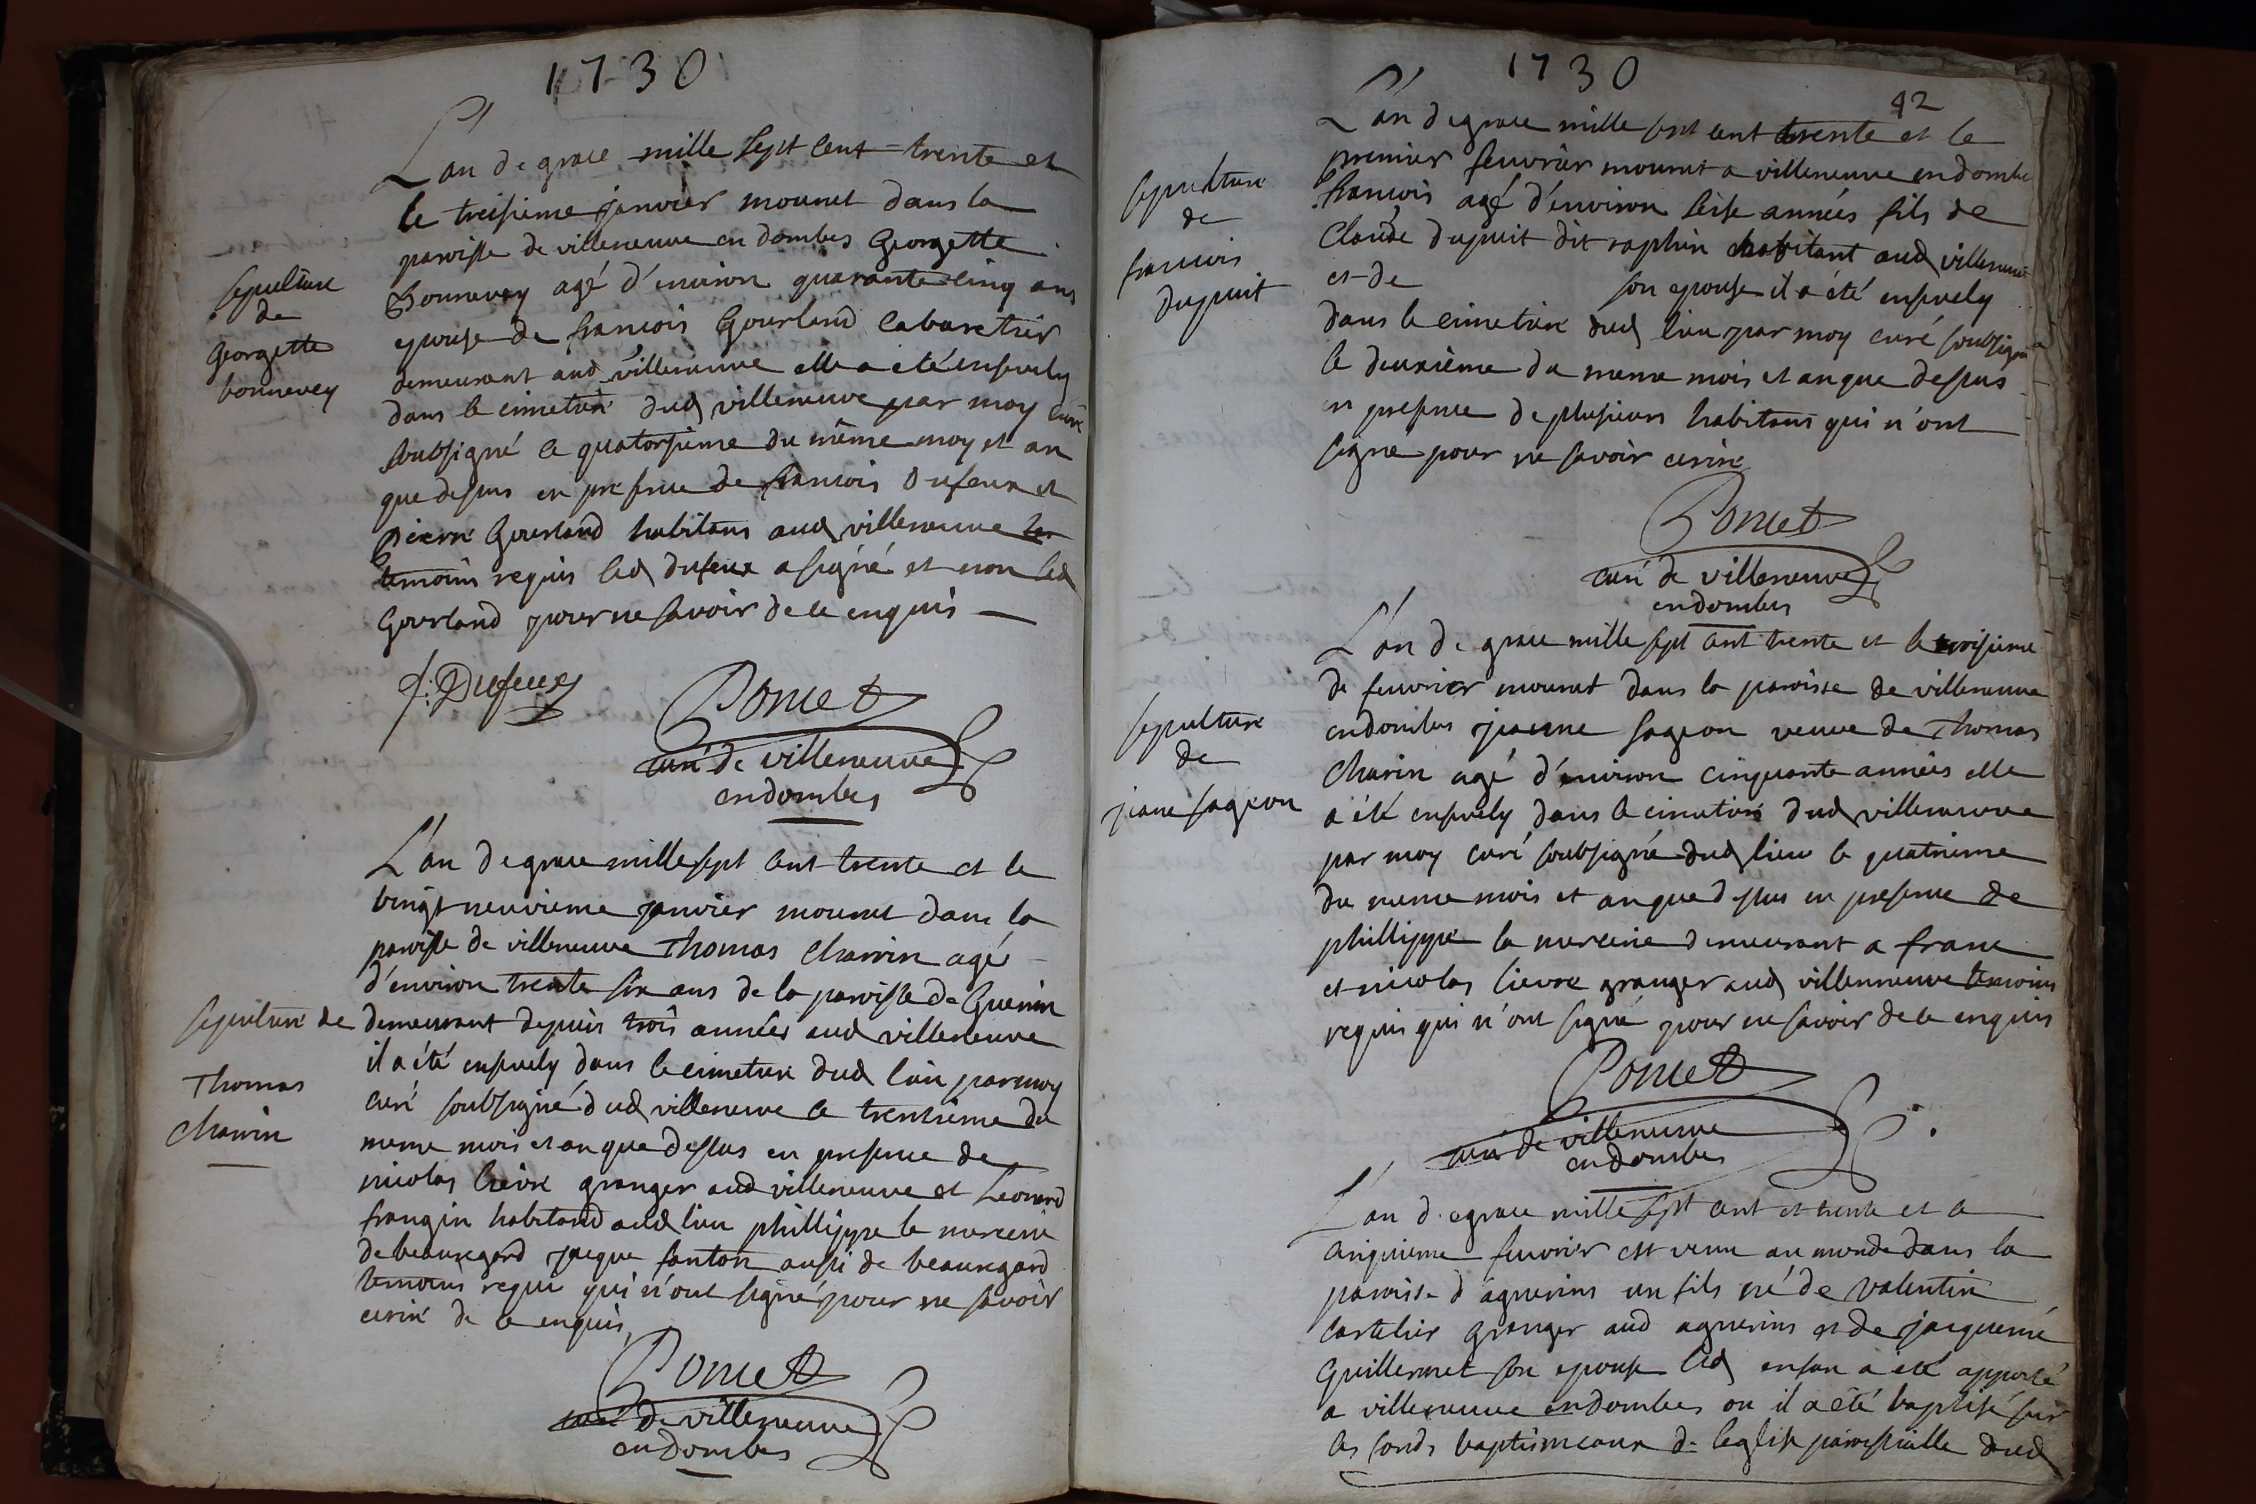 1730
L'an de grace mille sept cent trente et
le treisieme janvier mourut dans la
paroisse de villeneuve en dombes Georgette
Bonnevey agé d'environ quarante cinq ans
epouse de francois Gourland cabaretier
demeurant aud villeneuve elle a eté ensevely
dans le cimetiere dud villeneuve par moy curé
soubsigné le quatorsieme du même moy et an
que dessus en presence de francois Dufeux et
pierre Gourland habitans aud villeneuve
temoins requis led dufeux a signé et non led
Gourland pour ne savoir de ce enquis
sepulture
de
Georgette
bonnevey
f: Dufeux
Poncet
curé de villeneuve
en dombes
L'an de grace mille sept cent trente et le
vingt neuvieme janvier mourut dans la
paroisse de villeneuve Thomas Charrin agé
d'environ trente six ans de la paroisse de Guerin
demeurant depuis trois années aud villeneuve
il a été ensevely dans le cimetiere dud lieu par moy
curé soubsigné dud villeneuve le trentieme du
meme mois et an que dessus en presence de
nicolas lievre granger aud villeneuve et Leonard
frangin habitand aud lieu phillippe le mercerie
de beauregard jacque fanton aussi de beauregard
temoins requi qui n'ont signé pour ne savoir
ecrire de ce enquis
sepulture de
Thomas
Charrin
Poncet
curé de villeneuve
en dombes
1730
42
L'an de grace mille sept cent trente et le
premier feuvrier mourut a villeneuve en dombes
francois agé d'environ seise années fils de
Claude dupuit dit raphin habitant aud villeneuve
et de son epouse il a été ensevely
dans le cimetiere dud lieu par moy curé soubsigné
le deuxième du meme mois et an que dessus
en presence de plusieurs habitans qui n'ont
signe pour ne savoir ecrire
sepulture
de
francois
dupuit
Poncet
curé de villeneuve
en dombes
L'an de grace mille sept cent trente et le troisieme
de feuvrier mourut dans la paroisse de villeneuve
en dombes jeanne sageon veuve de Thomas
Charin agé d'environ cinquante années elle
a été ensevely dans le cimetiere dud villeneuve
par moy curé soubsigné dud lieu le quatrieme
du meme mois et an que dessus en presence de
phillippe la mercerie demeurant a franc
et nicolas lievre granger aud villenneuve temoins
requis qui n'ont signé pour ne savoir de ce enquis
sepulture
de
jeane sageon
Poncet
curé de villeneuve
en dombes
L'an de grace mille sept cent et trente et le
cinquieme feuvrier est venu au monde dans la
paroisse d'agnerins un fils né de valentin
Cartelier granger aud agnerins et de jacqueme
Guillermet son epouse led enfan a eté apporté
a villeneuve en dombes ou il a été baptisé sur
les fonds baptismeaux de l'eglise paroissialle dud